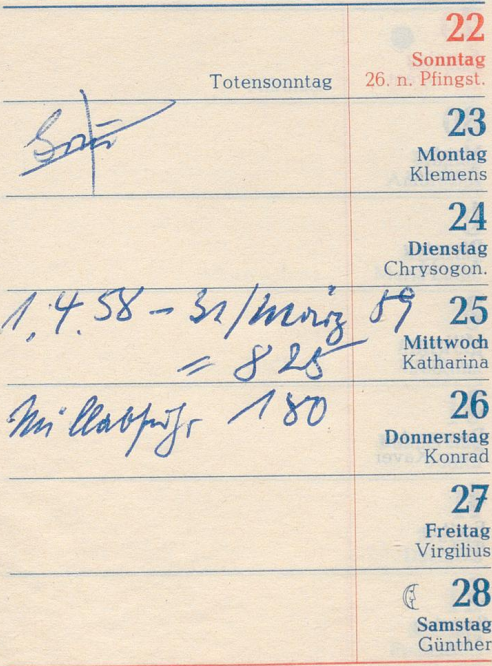 22
Sonntag
Totensonntag 26. n. Pfingst.
23
Montag
Klemens
24
Dienstag
Chrysogon.
1.4.58 – 31/März 59
25
Mittwoch
= 825
Katharina
26
Müllabfuhr 180
Donnerstag
Konrad
27
Freitag
Virgilius
28
Samstag
Günther